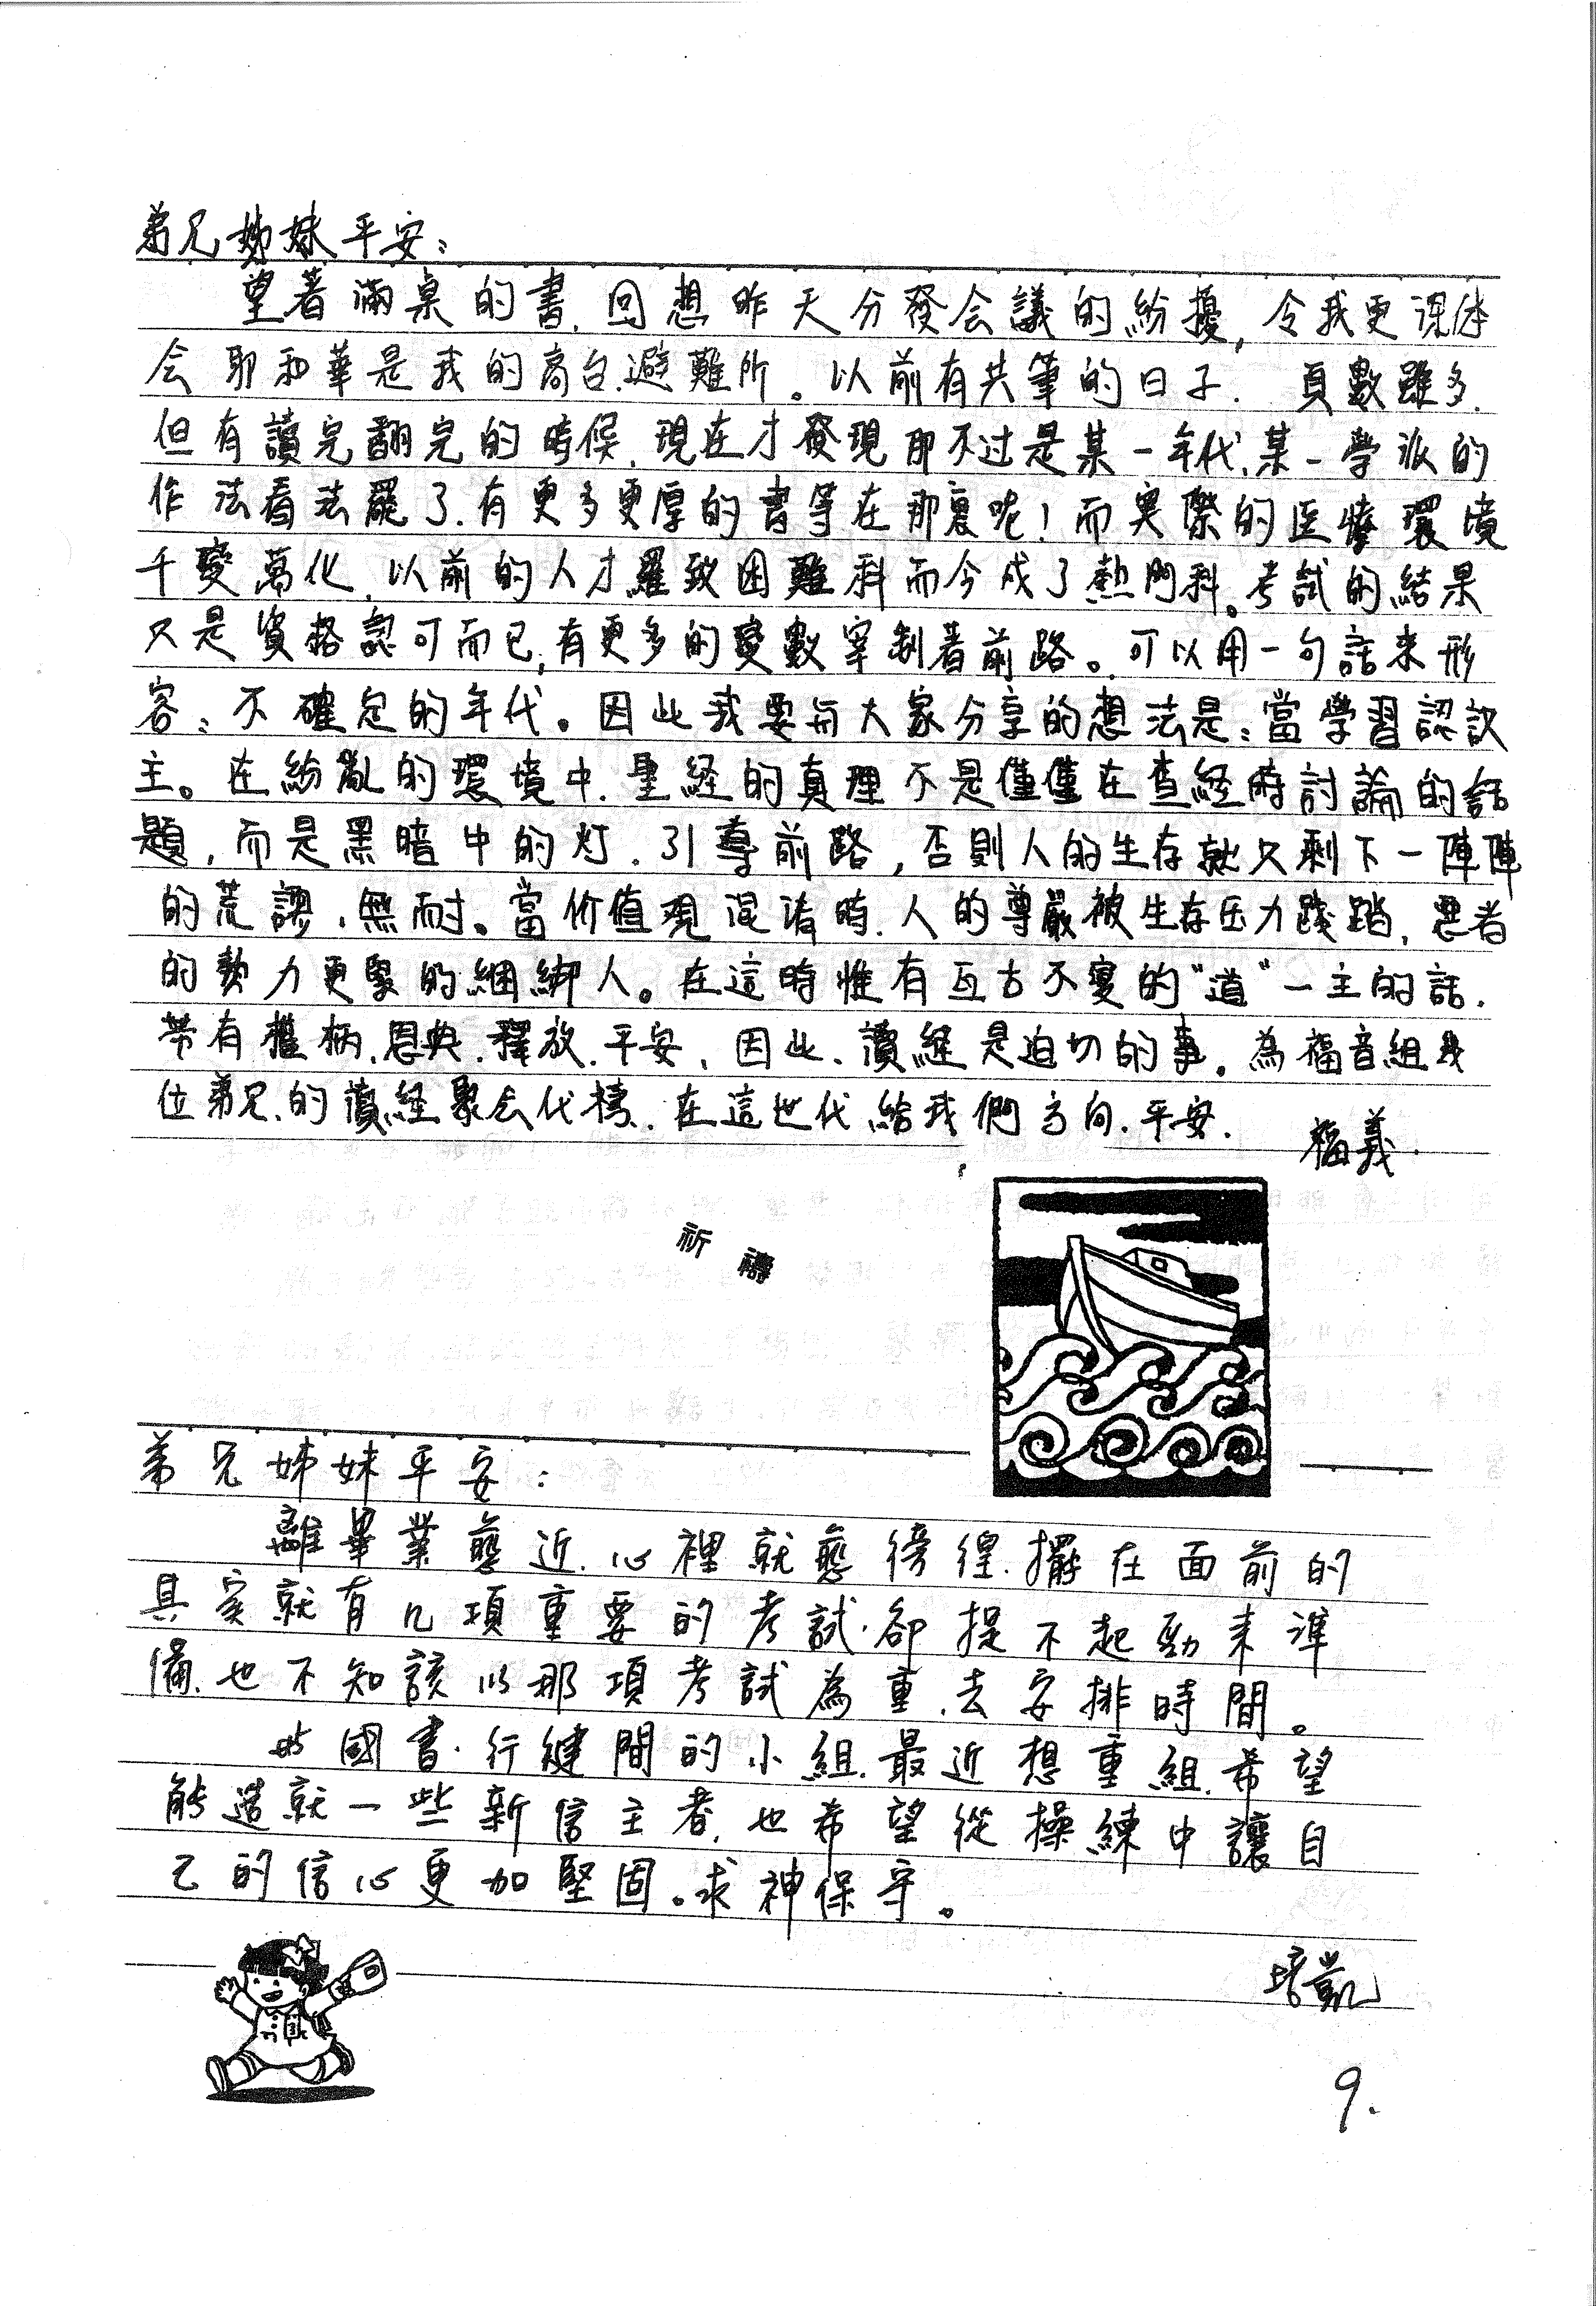 弟兄姊妹平安：
望著滿桌的書，回想昨天分發会議的紛擾，令我更深体
会耶和華是我的高台、避難所。以前有共筆的日子，頁數雖多，
但有讀完翻完的時候，現在才發現那不过是某一年代、某一學派的
作法看法罷了，有更多更厚的書等在那裏呢！而實際的医療環境
千變萬化，以前的人才羅致困難科而今成了熱門科。考試的結果
只是資格認可而已，有更多的變數宰制著前路。可以用一句話來形
容：不確定的年代。因此我要與大家分享的想法是：當學習認識
主。在紛亂的環境中，聖経的真理不是僅僅在查経時討論的話
題，而是黑暗中的灯，引導前路，否則人的生存就只剩下一陣陣
的荒謬、無耐。當价值观混淆時，人的尊嚴被生存压力踐踏，惡者
的勢力更緊的綑綁人。在這時惟有亙古不变的"道"－主的話，
帶有權柄、恩典、釋放、平安，因此，讀経是迫切的事。為福音組幾
位弟兄的讀経聚会代禱，在這世代給我們方向，平安.
福義.
祈禱
弟兄姊妹平安：
離畢業愈近，心裡就愈徬徨，擺在面前的
其实就有几項重要的考試，卻提不起勁來準
備，也不知該以那項考試為重，去安排時間。
與國書、行健間的小組，最近想重組，希望
能造就一些新信主者，也希望從操練中讓自
己的信心更加堅固。求神保守。
培凱
9.